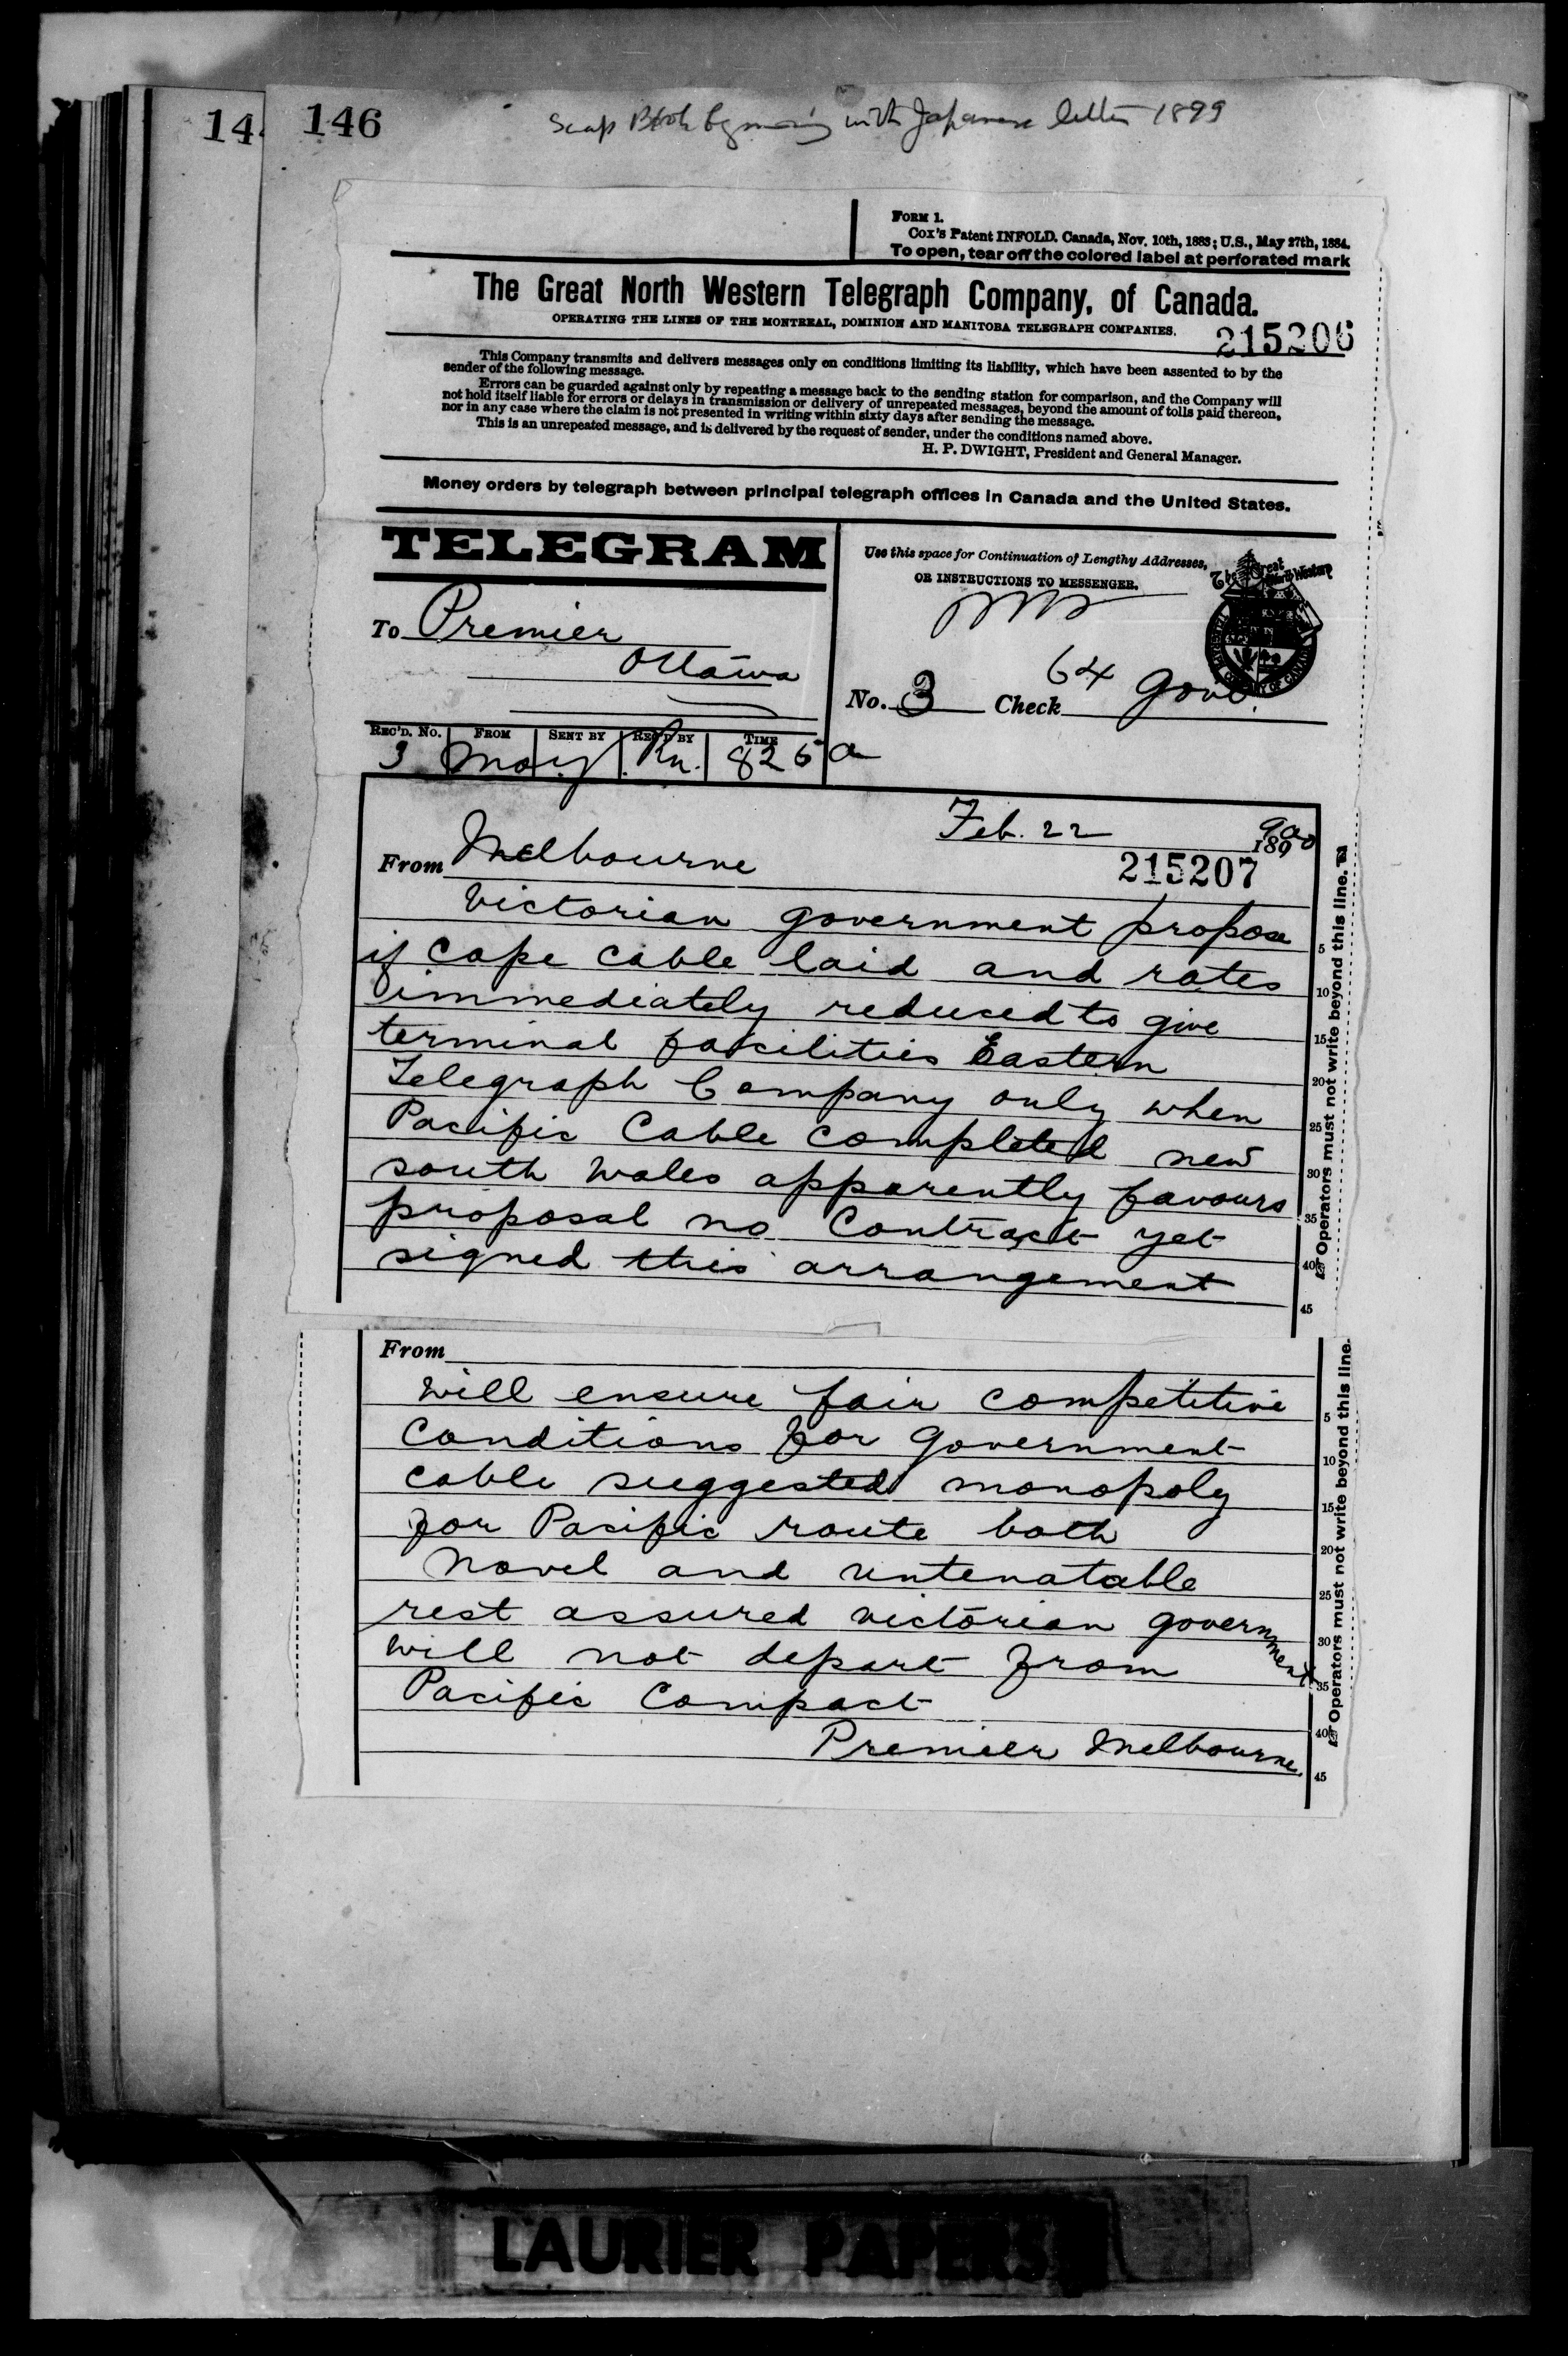 14
146
Scrap Book beginning with Japanese letter 1899
FORM 1.
Cox's Patent INFOLD. Canada, Nov. 10th, 1883; U.S., May 27th, 1884.
To open, tear off the colored label at perforated mark
The Great North Western Telegraph Company, of Canada.
OPERATING THE LINES OF THE MONTREAL, DOMINION AND MANITOBA TELEGRAPH COMPANIES.
215206
This Company transmits and delivers messages only on conditions limiting its liability, which have been assented to by the
sender of the following message.
Errors can be guarded against only by repeating a message back to the sending station for comparison, and the Company will
not hold itself liable for errors or delays in transmission or delivery of unrepeated messages, beyond the amount of tolls paid thereon,
nor in any case where the claim is not presented in writing within sixty days after sending the message.
This is an unrepeated message, and is delivered by the request of sender, under the conditions named above.
H. P. DWIGHT, President and General Manager.
Money orders by telegraph between principal telegraph offices in Canada and the United States.
TELEGRAM
Use this space for Continuation of Lengthy Addresses,
OR INSTRUCTIONS TO MESSENGER.
The Great North Western
To Premier
Ottawa
No. 3 Check 64 Govt.
REC'D. No. FROM SENT BY REC'D BY TIME
3 825 a
Feb. 22 1890 900
From Melbourne
215207
Victorian government propose
if Cape Cable laid and rates
immediately reduced to give
terminal facilities Eastern
Telegraph Company only when
Pacific Cable completed new
south wales apparently favours
proposal no Contract yet
signed this arrangement
5
10
15
20
25
30
35
40
45
Operators must not write beyond this line.
From
will ensure fair competitive
Conditions for Government
cable suggested monopoly
for Pacific route both
novel and untenatable
rest assured victorian government
will not depart from
Pacific Compact
Premier Melbourne.
5
10
15
20
25
30
35
40
45
Operators must not write beyond this line.
LAURIER PAPERS